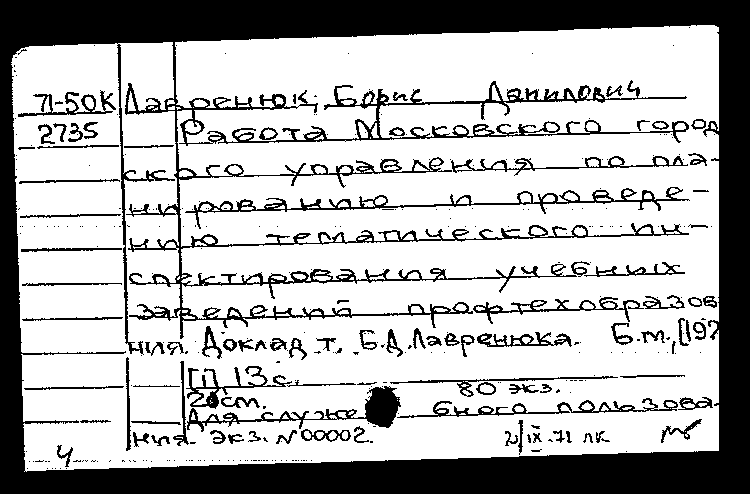 71-50К Лавренюк, Борис Данилович
2735 Работа Московского город
ского управления по пла-
нированию и проведе-
нию тематического ин-
спектирования учебных
заведений профтехобразов
ния. Доклад т. Б.Д.Лавренюка. Б.м., [197
[1], 13 с.
20 см. 80 экз.
Для служе бного пользова-
ния. экз. №00002.
4 2/IX-71 ЛК